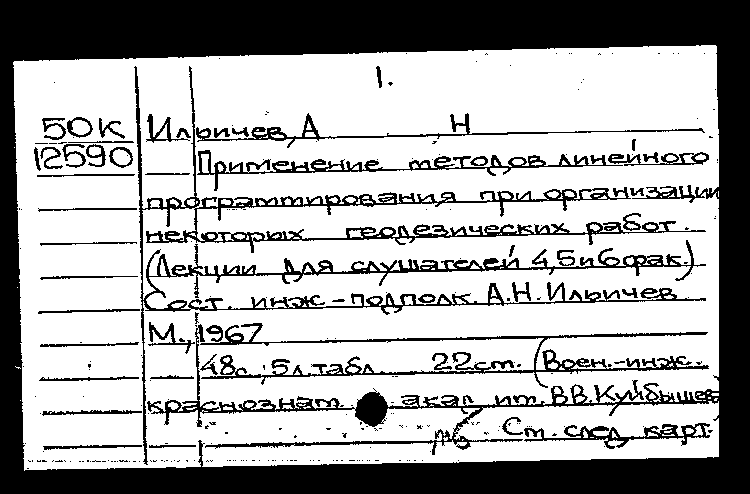 1.
50К Ильичев, А Н
12590 Применение методов линейного
программирования при организации
некоторых геодезических работ.
(Лекции для слушателей 4,5 и 6 фак.)
Сост. инж-подполк. А.Н.Ильичев
М., 1967.
48с.; 5л.табл. 22см. (Воен.-инж.
краснознам. акад им. В.В.Куйбышева
См. след карт.